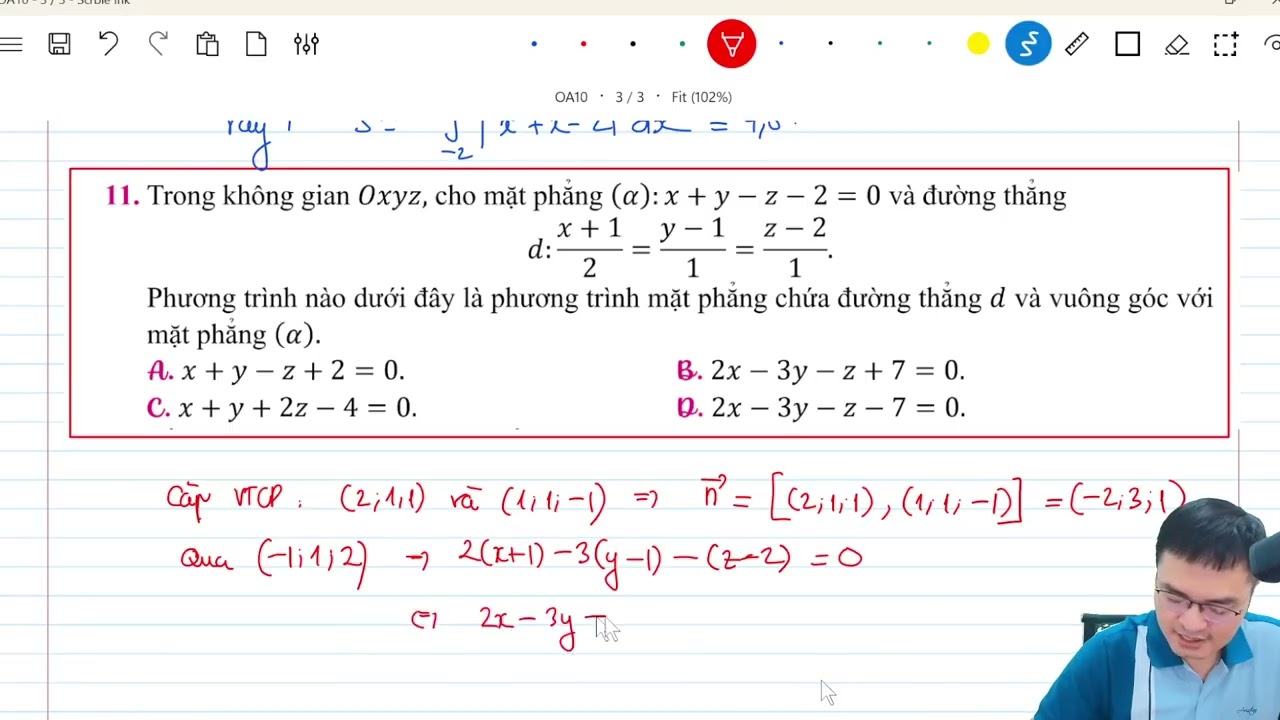 OA10 · 3 / 3 · Fit (102%)
11. Trong không gian Oxyz, cho mặt phẳng (α): x + y − z − 2 = 0 và đường thẳng
d: (x + 1)/2 = (y − 1)/1 = (z − 2)/1.
Phương trình nào dưới đây là phương trình mặt phẳng chứa đường thẳng d và vuông góc với
mặt phẳng (α).
A. x + y − z + 2 = 0. B. 2x − 3y − z + 7 = 0.
C. x + y + 2z − 4 = 0. D. 2x − 3y − z − 7 = 0.
Cặp VTCP: (2;1;1) và (1;1;−1) => n⃗ = [(2;1;1), (1;1;−1)] = (−2;3;1)
Qua (−1;1;2) → 2(x+1) − 3(y−1) − (z−2) = 0
⇔ 2x − 3y −